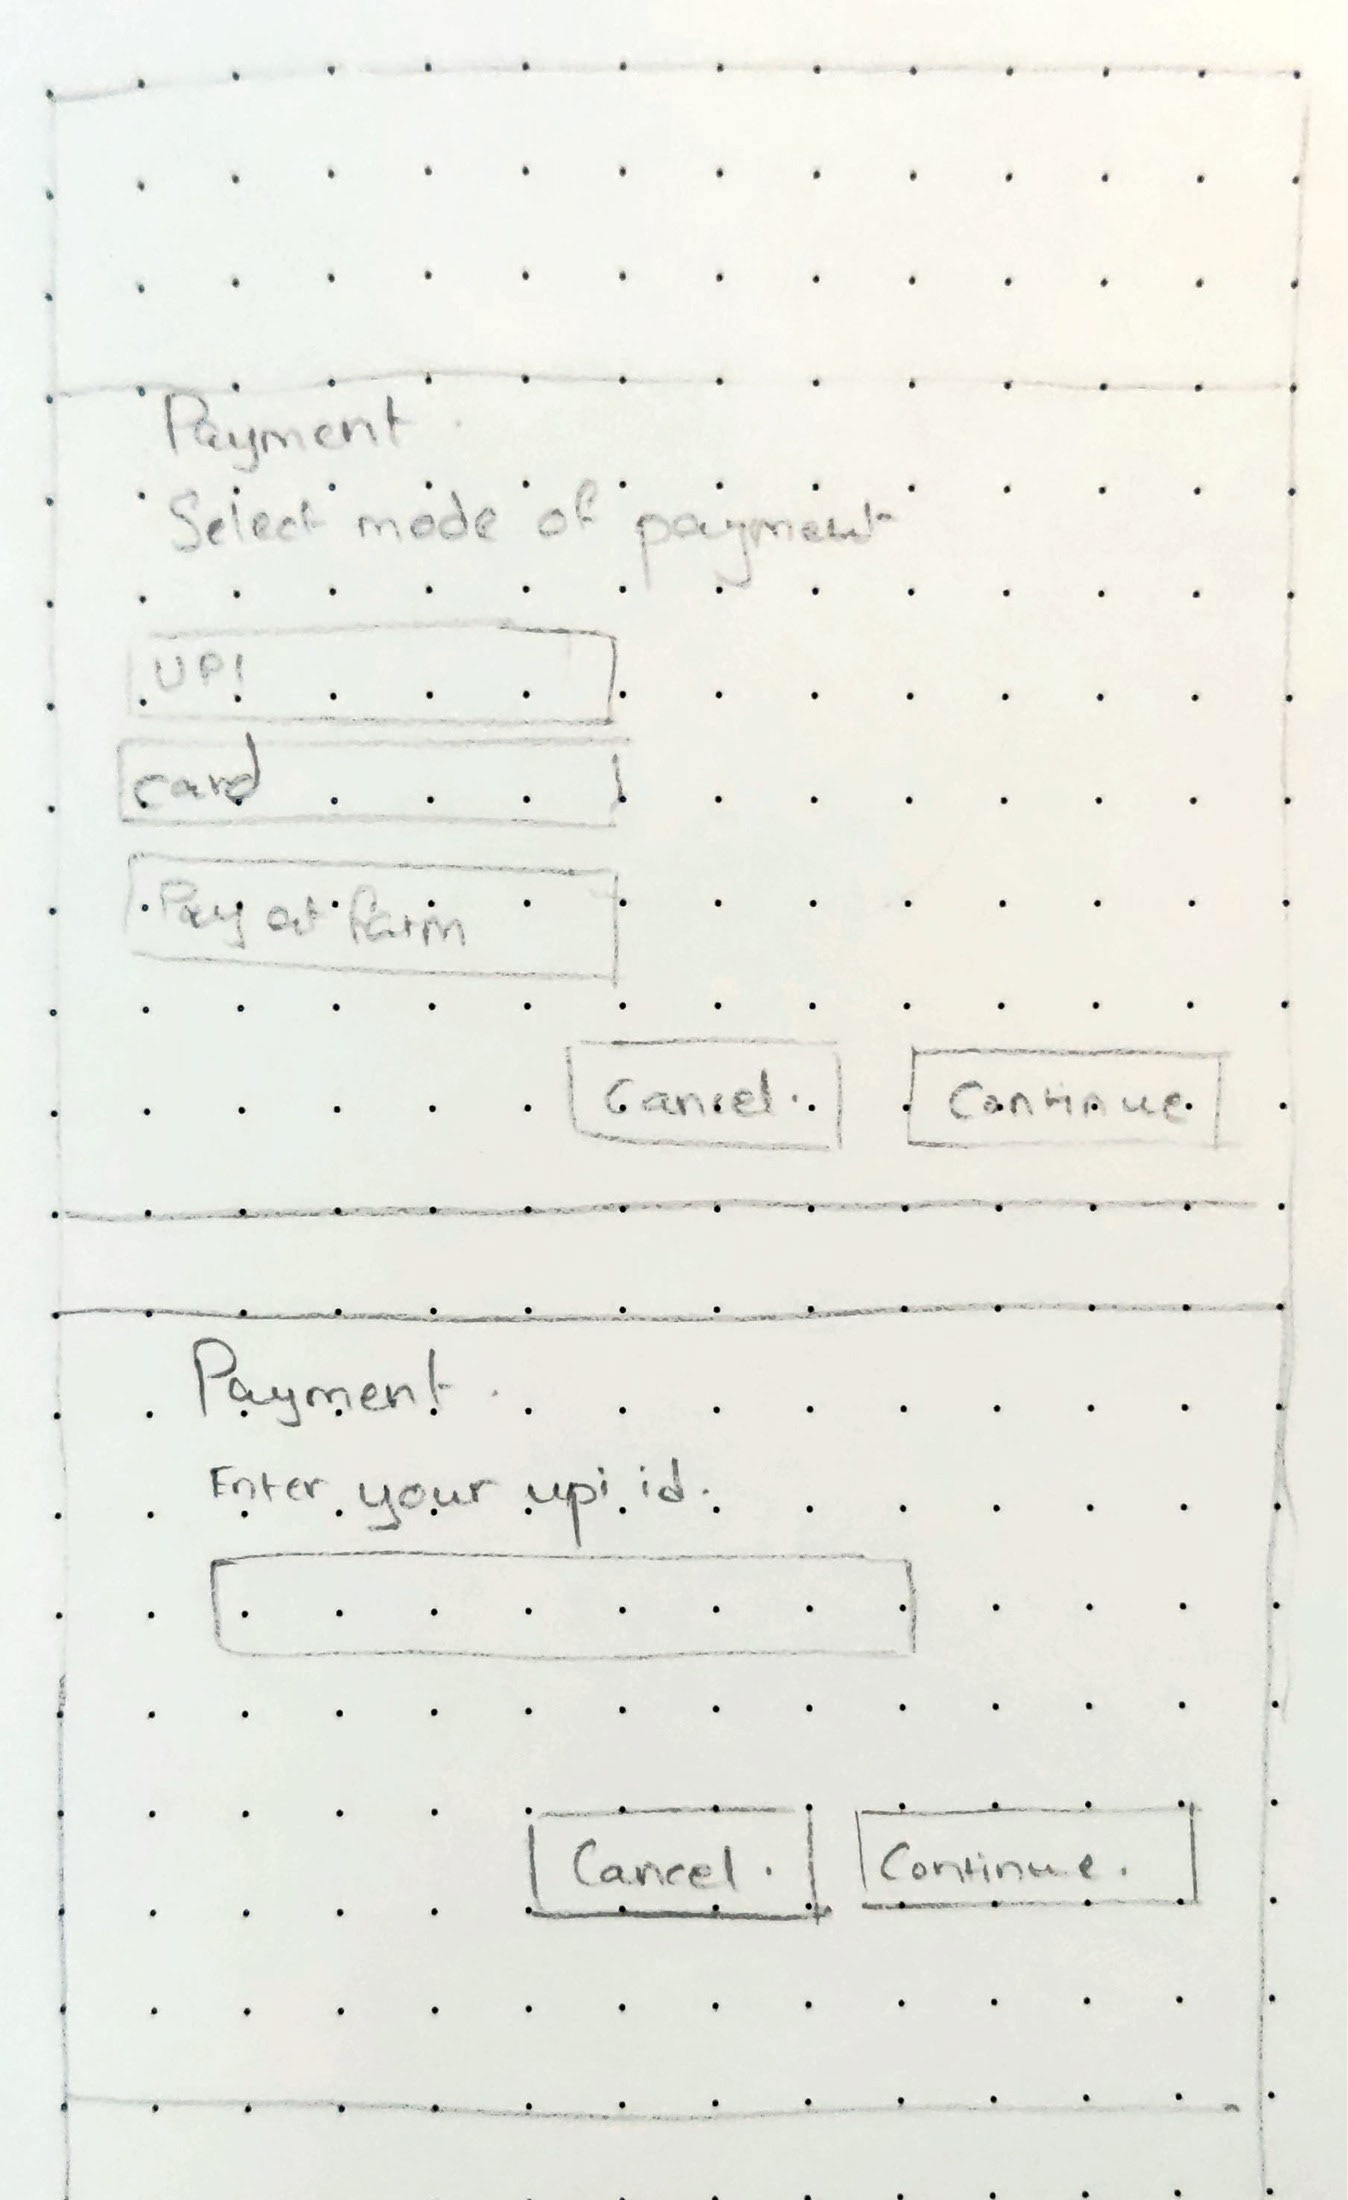 Payment.
Select mode of payment
UPI
card
Pay at farm
Cancel.
Continue
Payment.
Enter your upi id.
Cancel.
Continue.